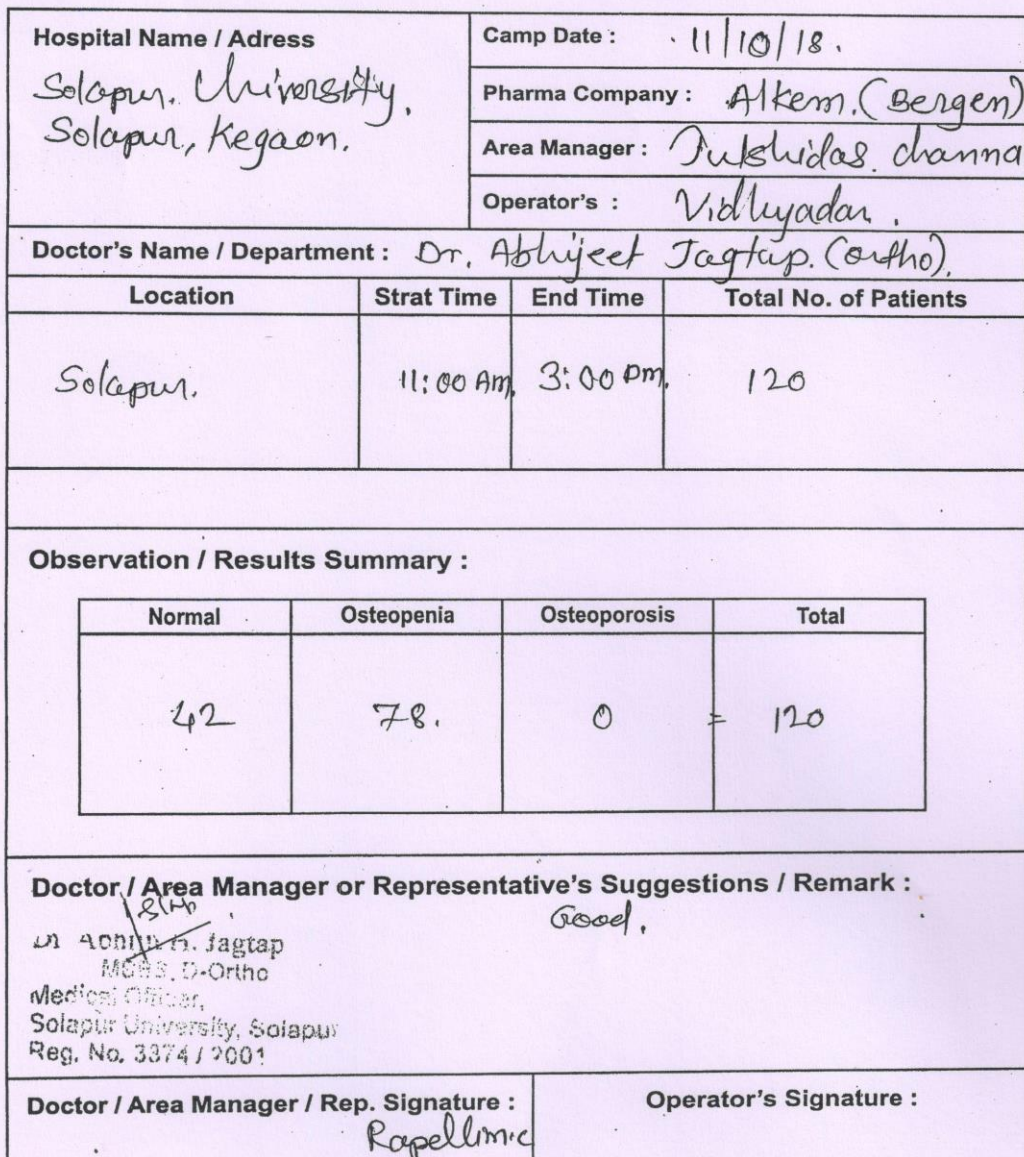 Hospital Name / Adress
Solapur. University.
Solapur, Kegaon.
Camp Date : 11/10/18.
Pharma Company : Alkem. (Bergen)
Area Manager : Tulshidas channa
Operator's : Vidhyadar.
Doctor's Name / Department : Dr. Abhijeet Jagtap. (ortho).
Location Strat Time End Time Total No. of Patients
Solapur. 11:00 Am. 3:00 pm. 120
Observation / Results Summary :
Normal Osteopenia Osteoporosis Total
42 78. 0 = 120
Doctor / Area Manager or Representative's Suggestions / Remark :
Good.
Jagtap
MBBS, D-Ortho
Medical Officer,
Solapur University, Solapur
Reg. No. 3374 / 2001
Doctor / Area Manager / Rep. Signature :
Operator's Signature :